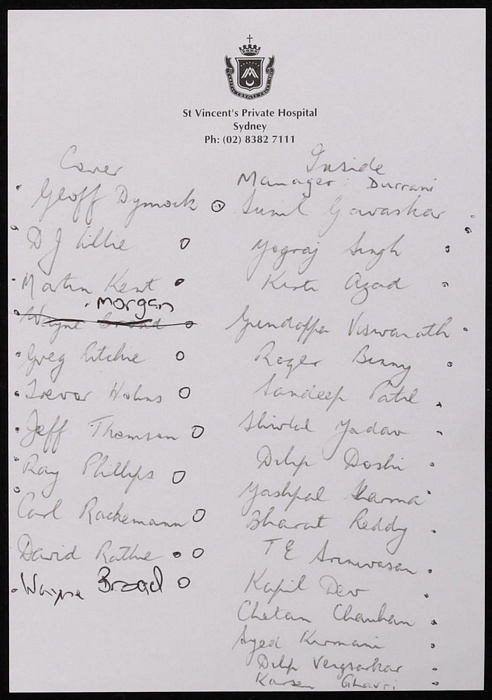 St Vincent's Private Hospital
Sydney
Ph: (02) 8382 7111
Cover
Geoff Dymock
D J Lillie
Martin Kent
Morgan
Wayne Broad
Greg Ritchie
Trevor Hohns
Jeff Thomson
Ray Phillips
Carl Rackemann
David Rathie
Wayne Broad
Inside
Manager: Durrani
Sunil Gavaskar
Yograj Singh
Kirti Azad
Gundappa Viswanath
Roger Binny
Sandeep Patil
Shivlal Yadav
Dilip Doshi
Yashpal Sharma
Bharat Reddy
T E Srinivasan
Kapil Dev
Chetan Chauhan
Syed Kirmani
Dilip Vengsarkar
Karsen Ghavri